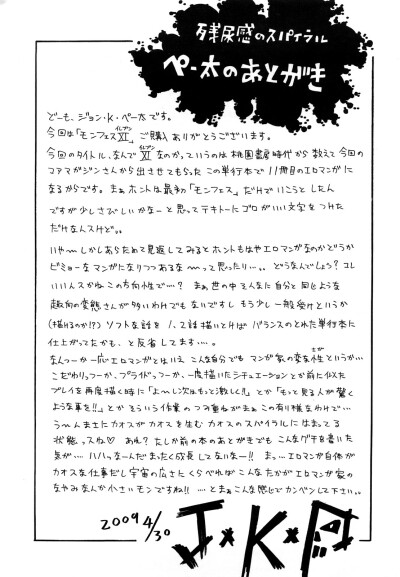 残尿感のスパイラル
ペー太のあとがき
どーも、ジョン・K・ペー太です。
今回は「モンフェスXI」ご購入ありがとうございます。
イレブン
今回のタイトル、なんでXIなのかっていうのは桃園書房時代から数えて今回の
イレブン
マガマガジンさんから出させてもらったこの単行本で11冊目のエロマンガに
なるからです。まぁホントは最初「モンフェス」だけでいこうとしたん
ですが少しさびしいかなーと思ってテキトーにゴロがいい文字をつけた
だけなんスけど。。
いやーしかしあらためて見返してみるとホントもはやエロマンガなのかどうか
ビミョーなマンガになりつつあるな〜って思ったり…。。どうなんでしょう?コレ
いいんスかねこの方向性で…?まぁ世の中そんなに自分と同じような
趣向の変態さんが多いわけでもないですしもう少し一般受けというか
(描けるのか!?)ソフトな話を1、2話描いとけばバランスのとれた単行本に
仕上がってたかも、と反省してます…。
なんつーか一応エロマンガとはいえ、こんな自分でもマンガ家の変な性というか…
さが
こだわりっつーか、プライドっつーか、一度描いたシチュエーションとか前に似た
プレイを再度描く時に「よ〜し次はもっと激しく!!」とか「もっと見る人が驚く
ような事を!!」とかそういう作業のつみ重ねがまぁこの有り様なわけで…
う〜んまさにカオスがカオスを生むカオスのスパイラルにはまってる
状態っスね♡ あれ?たしか前の本のあとがきでもこんなグチを書いた
気が…ハハッなーんだまったく成長してないなー!! まっ…エロマンガ自体が
カオスな仕事だし宇宙の広さにくらべればこんなたかがエロマンガ家の
なやみなんか小さいモンですね!! …とまぁこんな感じでカンベンして下さい。。
2009 4/30
J×K×P